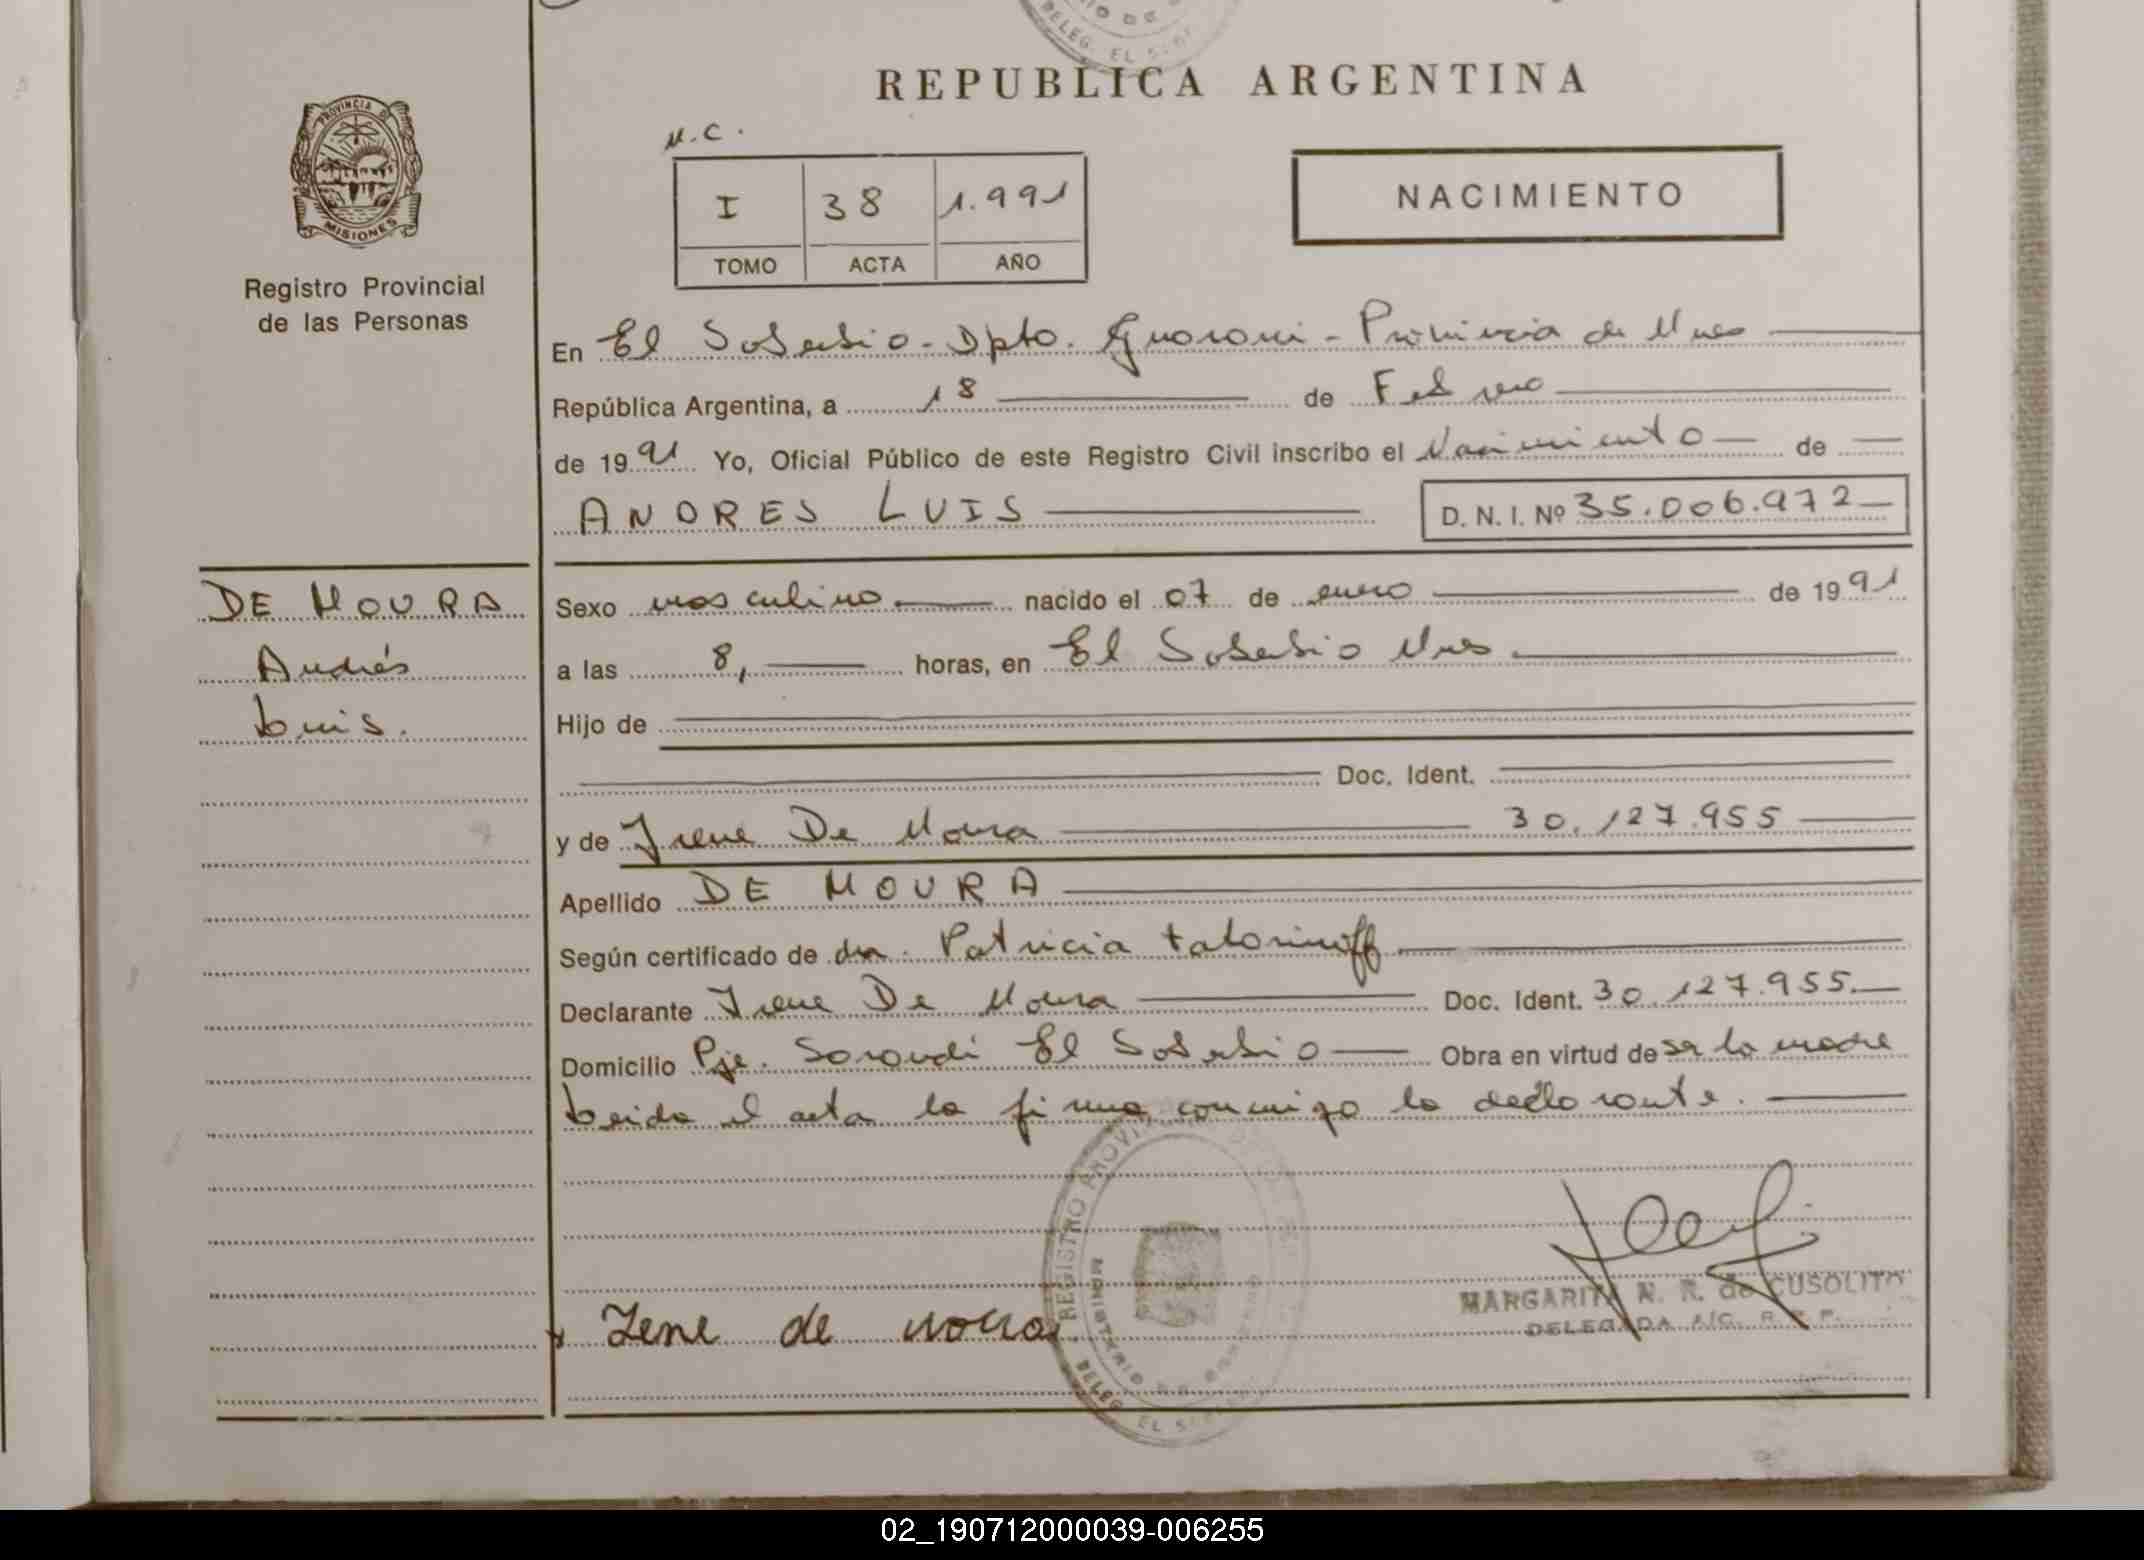 REPUBLICA ARGENTINA
PROVINCIA DE
MISIONES
Registro Provincial
de las Personas
N.C.
I 38 1.991
TOMO ACTA AÑO
NACIMIENTO
En El Soberbio - Dpto. Guarani - Provincia de Mnes
República Argentina, a 18 de Febrero
de 1991 Yo, Oficial Público de este Registro Civil inscribo el Nacimiento de
ANDRES LUIS D. N. I. Nº 35.006.972
DE MOURA
Andrés
Luis.
Sexo masculino nacido el 07 de enero de 1991
a las 8, horas, en El Soberbio Mnes
Hijo de
Doc. Ident.
y de Irene De Moura 30.127.955
Apellido DE MOURA
Según certificado de dra. Patricia
Declarante Irene De Moura Doc. Ident. 30.127.955.
Domicilio Pje. Sarandí El Soberbio Obra en virtud de ser la madre
Leida el acta la firma conmigo la declarante.
REGISTRO PROVINCIAL DE
MINISTERIO DE GOBIERNO
DELEG. EL SOBERBIO
MARGARITA N. R. de CUSOLITO
DELEGADA A/C. R. P. P.
x Irene de moura
02_190712000039-006255